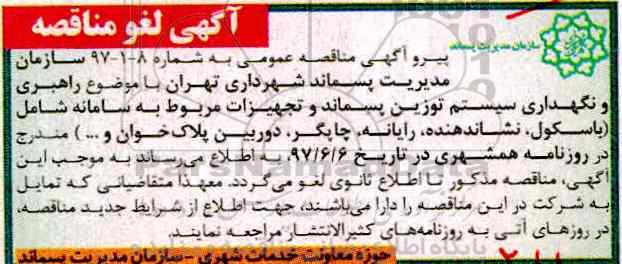 آگهی لغو مناقصه
سازمان مدیریت پسماند
پیرو آگهی مناقصه عمومی به شماره ۸-۱-۹۷ سازمان
مدیریت پسماند شهرداری تهران با موضوع راهبری
و نگهداری سیستم توزین پسماند و تجهیزات مربوط به سامانه شامل
(باسکول، نشاندهنده، رایانه، چاپگر، دوربین پلاک‌خوان و ...) مندرج
در روزنامه همشهری در تاریخ ۹۷/۶/۶، به اطلاع می‌رساند به موجب این
آگهی، مناقصه مذکور تا اطلاع ثانوی لغو می‌گردد. معهذا متقاضیانی که تمایل
به شرکت در این مناقصه را دارا می‌باشند، جهت اطلاع از شرایط جدید مناقصه،
در روزهای آتی به روزنامه‌های کثیرالانتشار مراجعه نمایند.
حوزه معاونت خدمات شهری - سازمان مدیریت پسماند